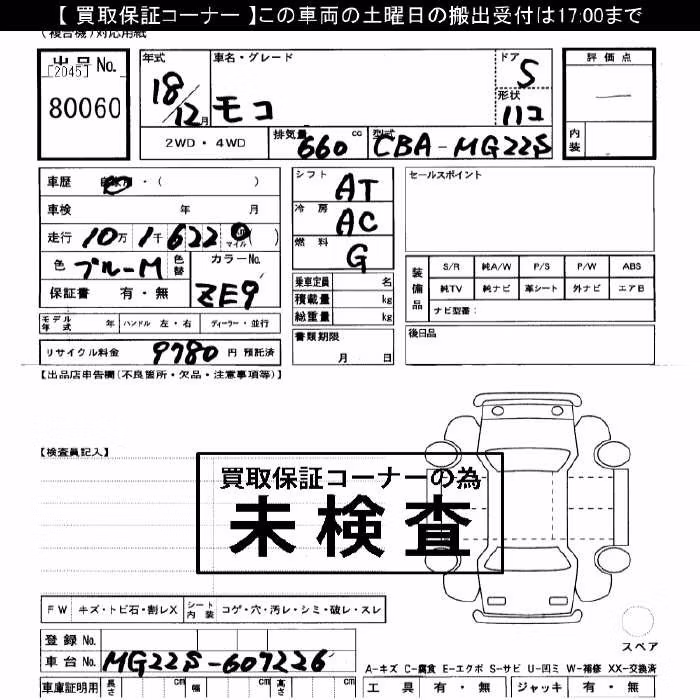 【 買取保証コーナー 】この車両の土曜日の搬出受付は17:00まで
(複合機)対応用紙
出品 No.
[2045]
80060
年式
18/12月
車名・グレード
モコ
ドア
5
形状
ハコ
評価点
—
内装
2WD・4WD
排気量
660 cc
型式
CBA-MG22S
車歴 自家用・( )
車検 年 月
走行 10万 1千 622 Km マイル ( )
色 ブルーM 色替
カラーNo.
ZE9
保証書 有・無
モデル年式 年 ハンドル 左・右 ディーラー・並行
リサイクル料金 9780 円 預託済
シフト AT
冷房 AC
燃料 G
乗車定員 名
積載量 kg
総重量 kg
書類期限
月 日
セールスポイント
装備品
S/R 純A/W P/S P/W ABS
純TV 純ナビ 革シート 外ナビ エアB
ナビ型番:
後日品
【出品店申告欄(不良箇所・欠品・注意事項等)】
【検査員記入】
買取保証コーナーの為
未検査
FW キズ・トビ石・割レX シート内装 コゲ・穴・汚レ・シミ・破レ・スレ
スペア
登録 No.
車台 No. MG22S-607226
A-キズ C-腐食 E-エクボ S-サビ U-凹ミ W-補修 XX-交換済
車庫証明用 長さ cm 幅 cm 高さ cm
工具 有・無 ジャッキ 有・無